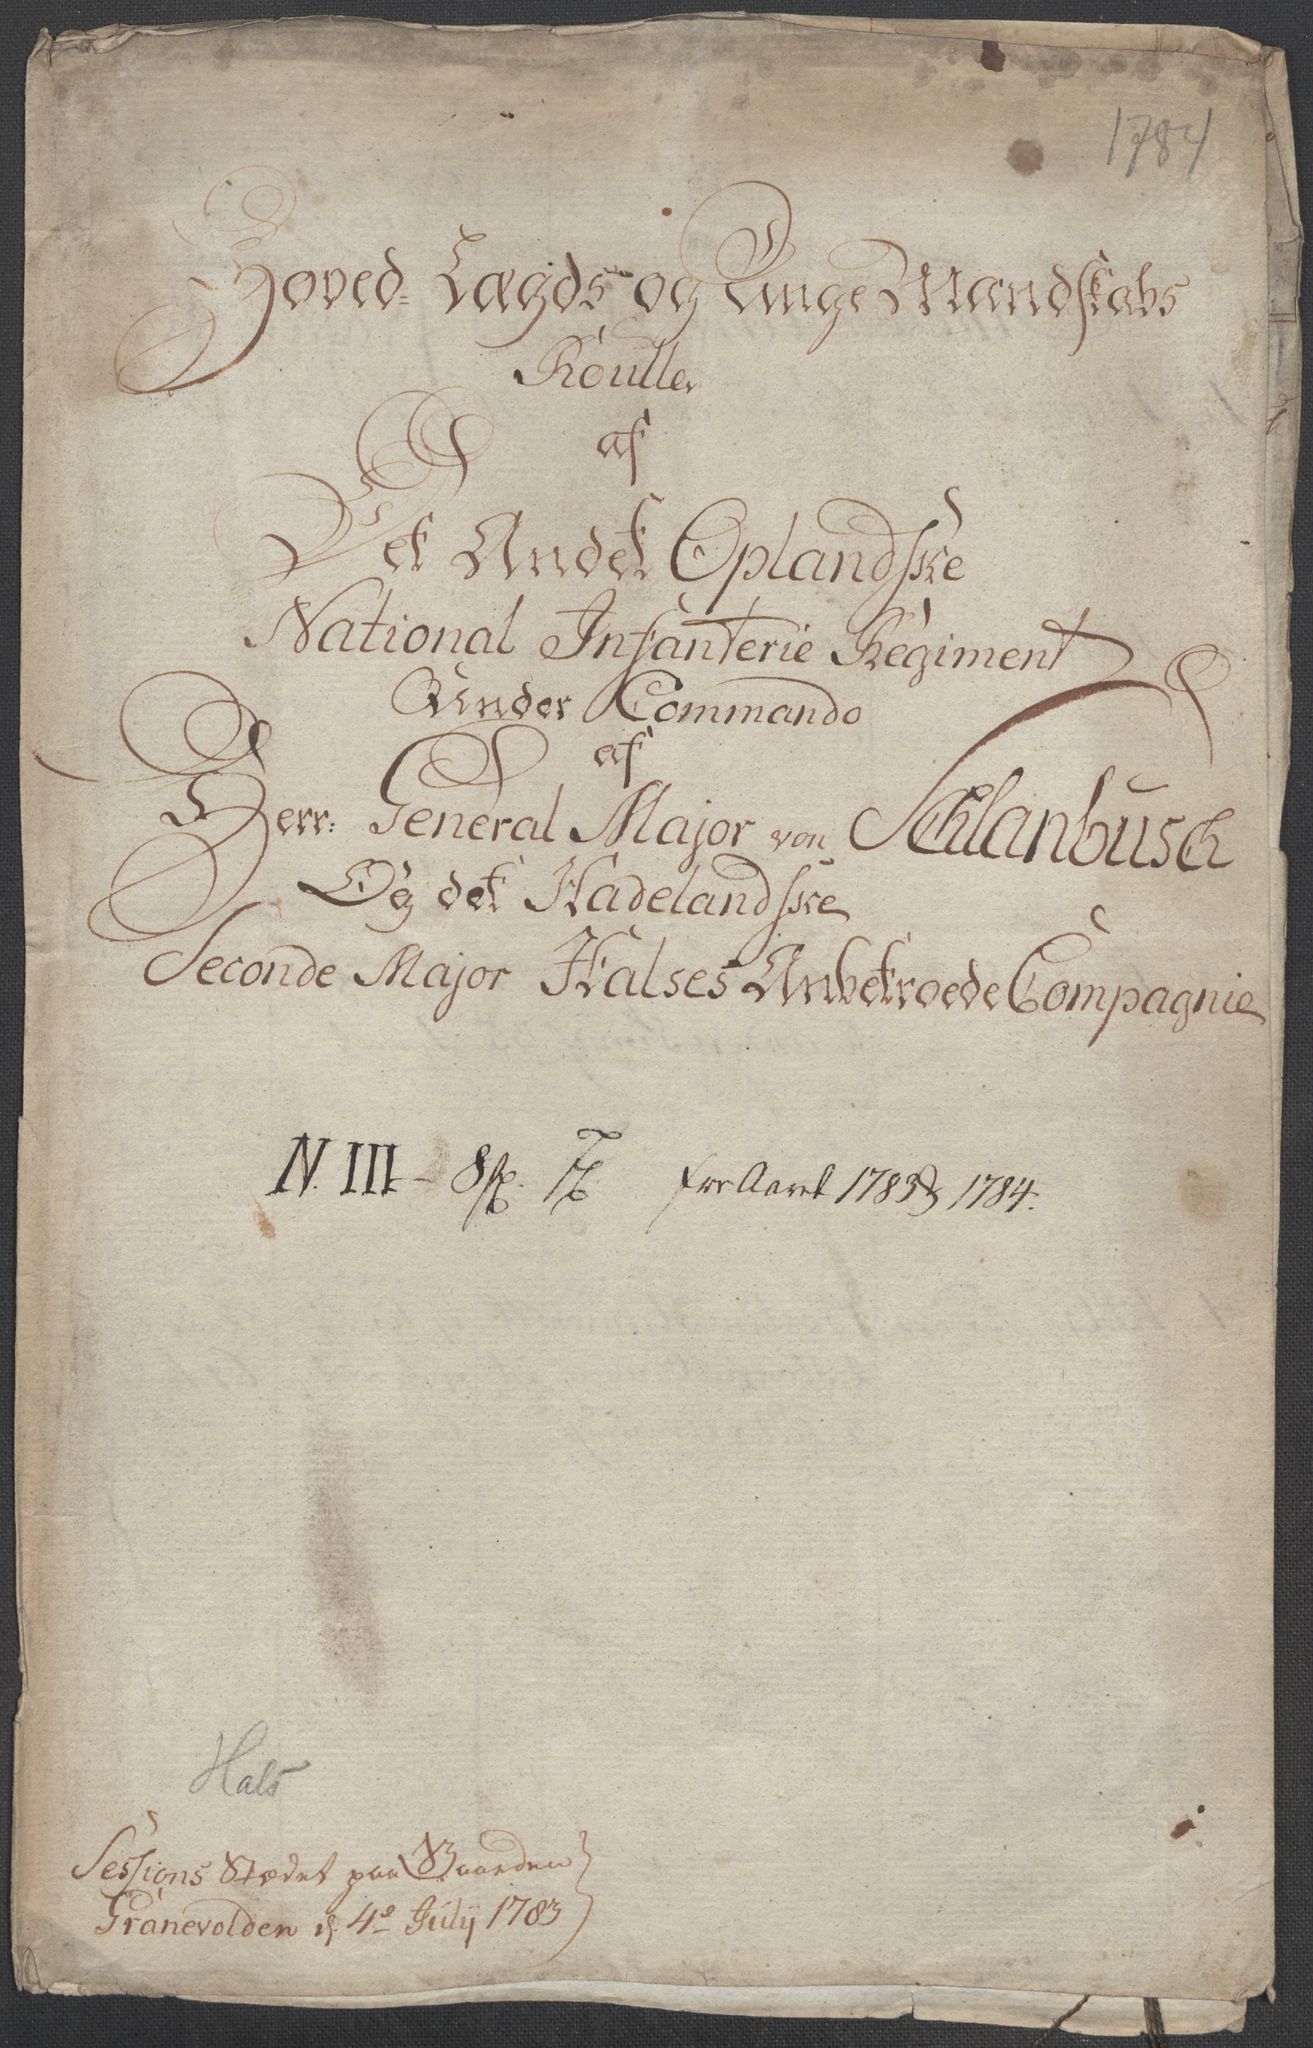 1784
Hoved- Lægds og Unge Mandskabs
Roulle
af
Det Andet Oplandske
National Infanterie Regiment
Under Commando
af
Herr: General Major von Schlanbusch
Og det Hadelandske
Seconde Major Halses Anbetroede Compagnie
N. III - for Aaret 1783 & 1784.
Hals
Sessions Stædet paa Gaarden
Granevolden d. 4de Julij 1783